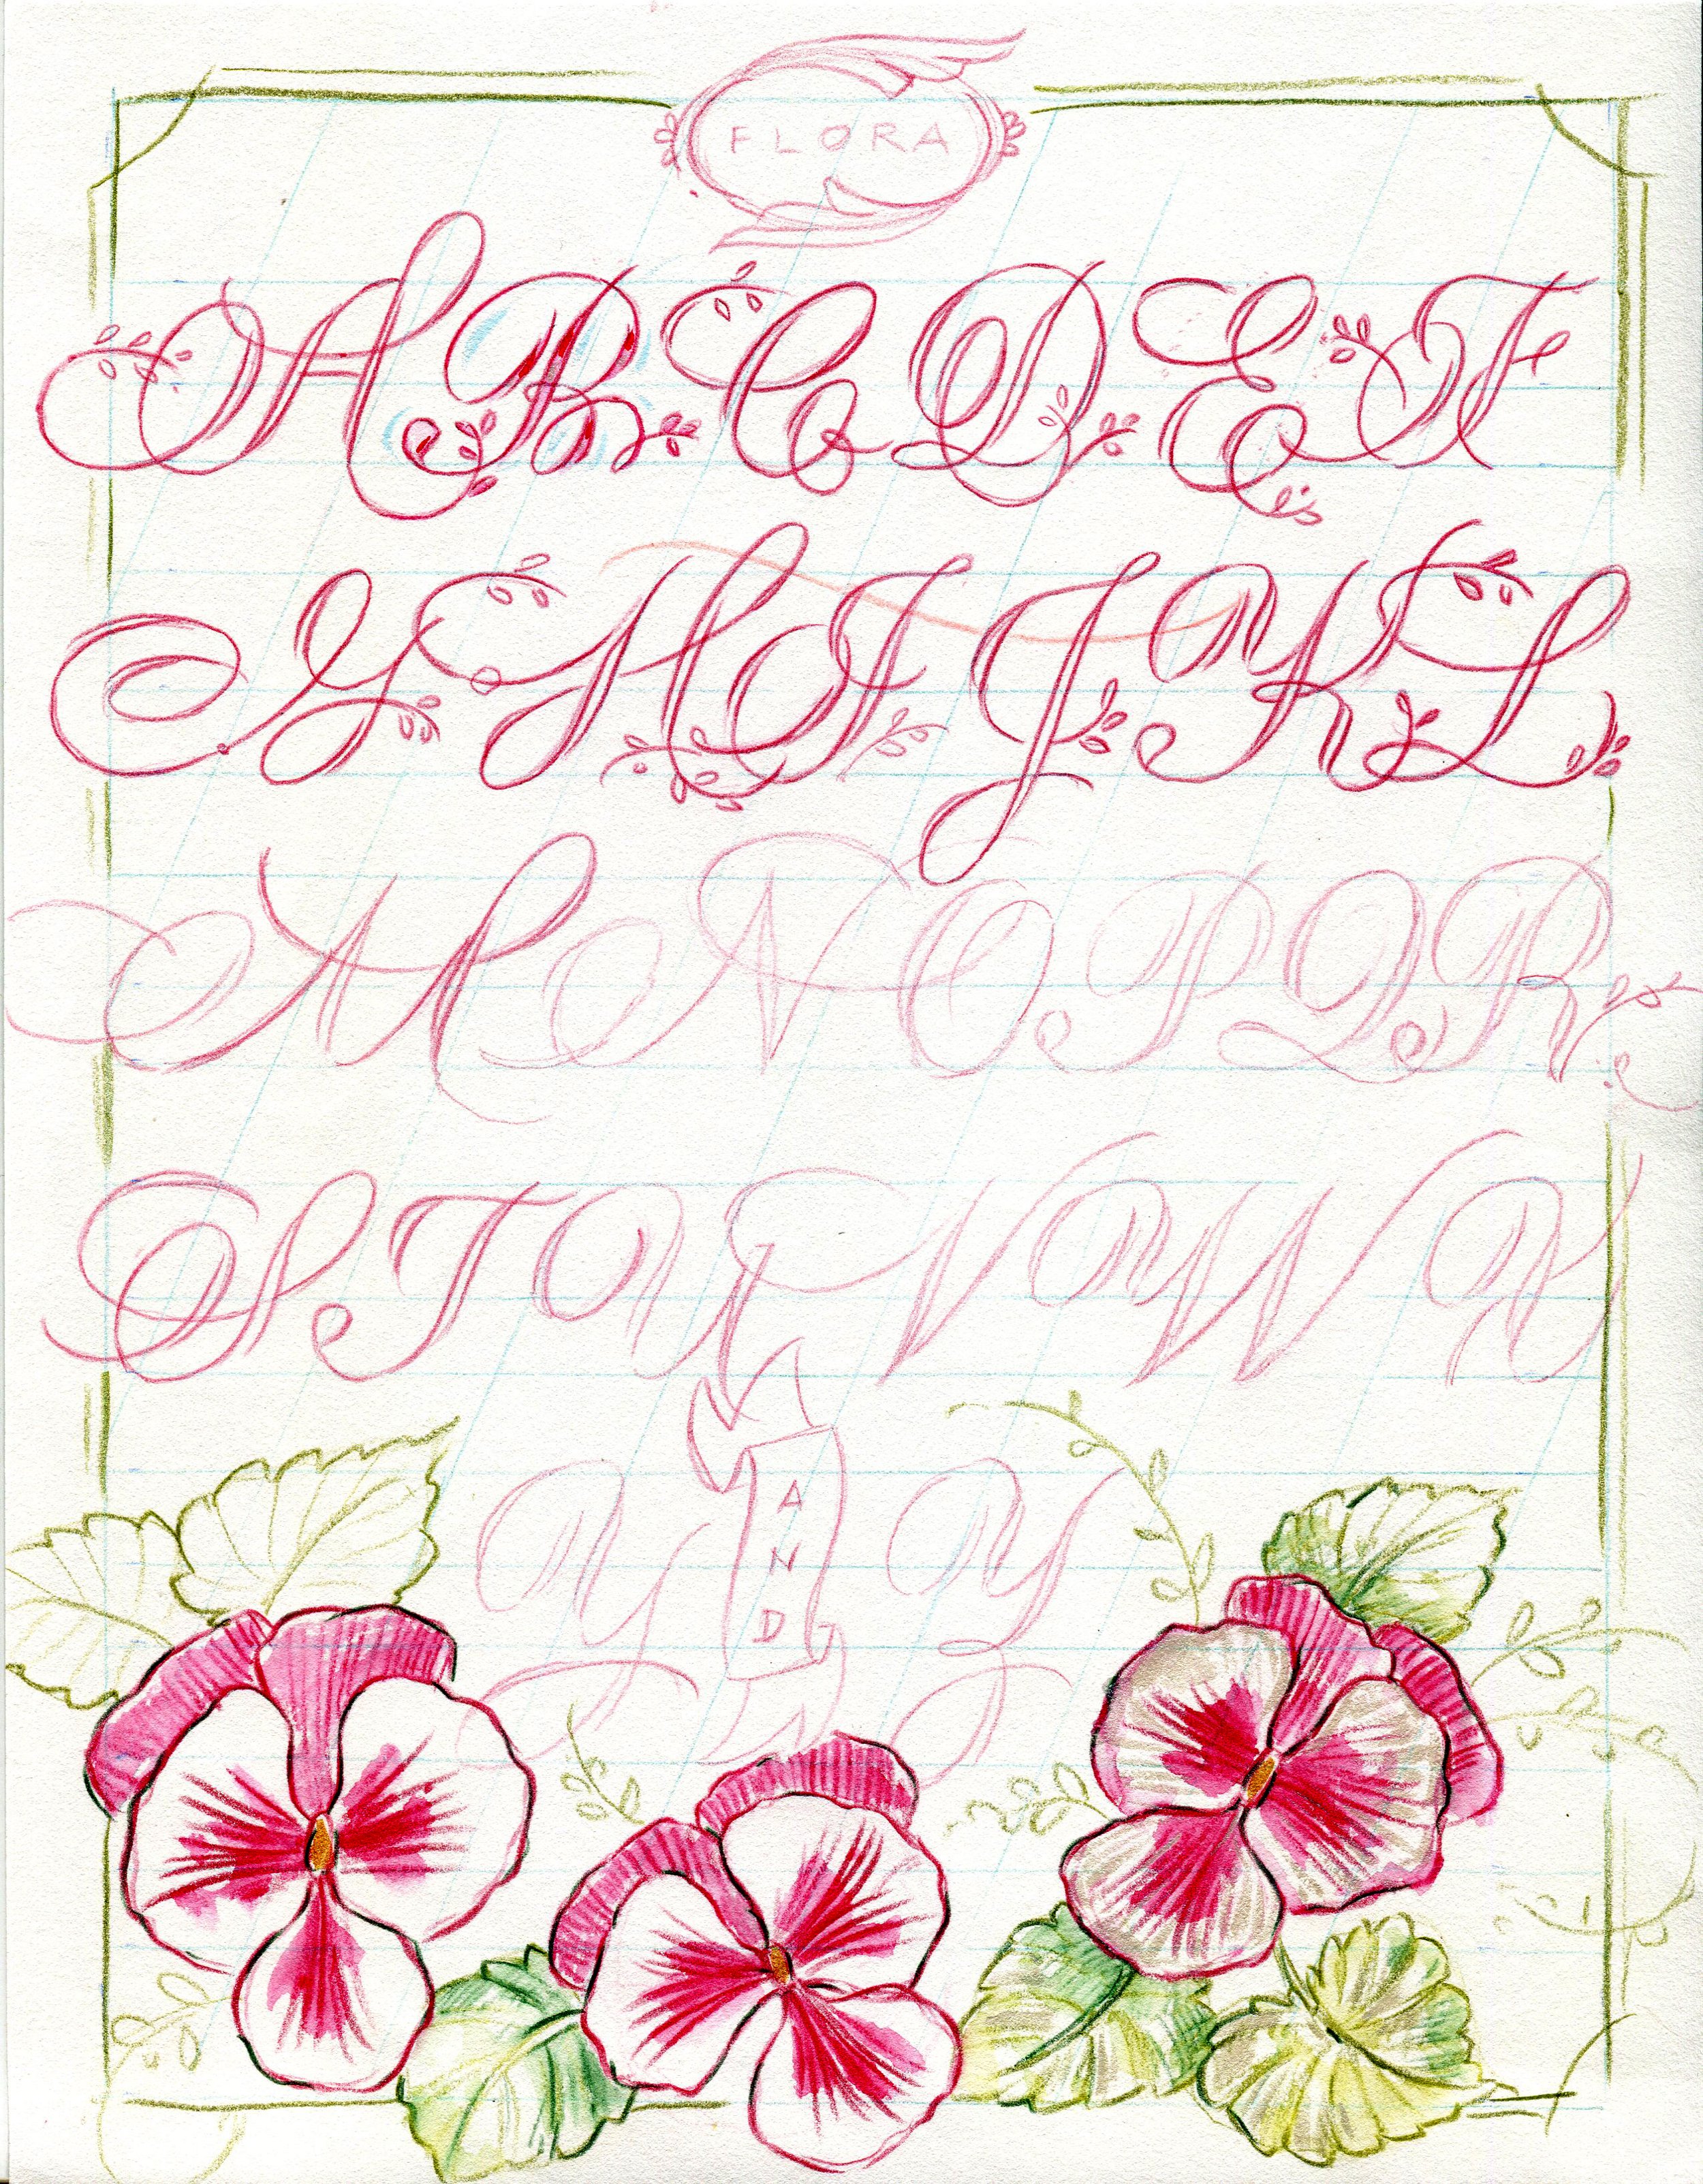 FLORA
A B C D E F
G H I J K L
M N O P Q R
S T U V W X
Y AND Z